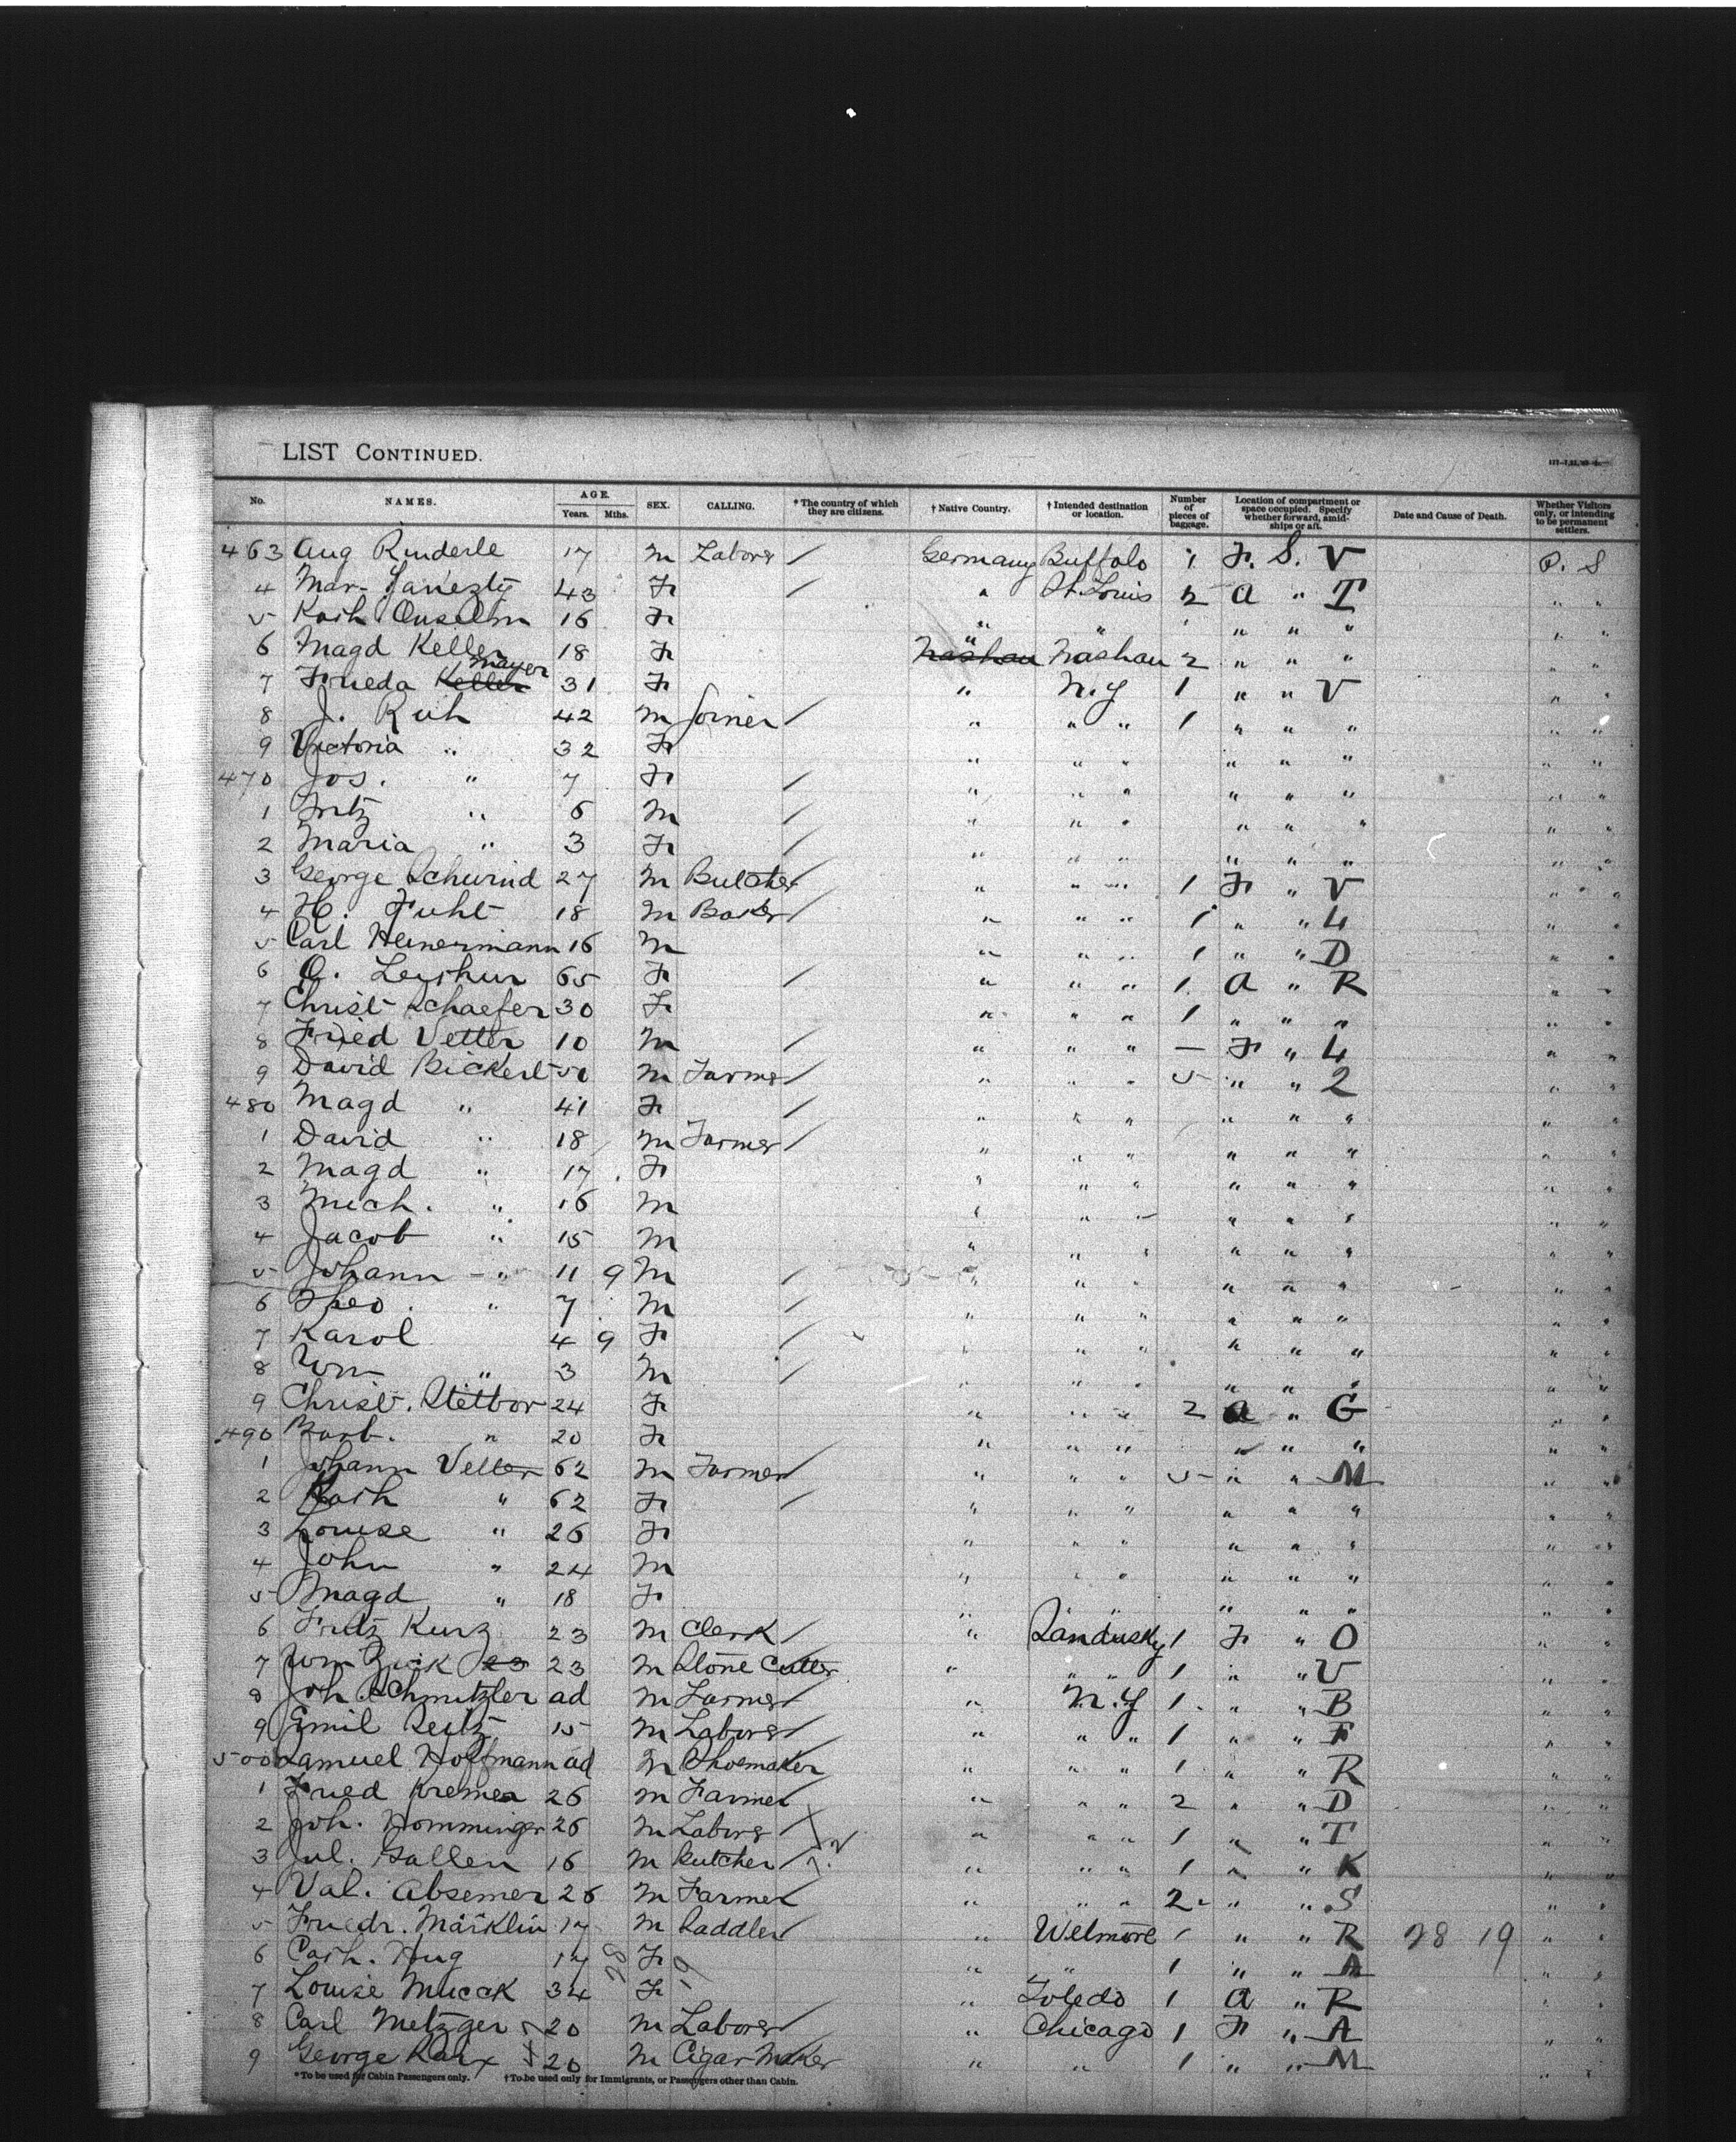 LIST CONTINUED.
No. NAMES. AGE. Years. Mths. SEX. CALLING. * The country of which they are citizens. † Native Country. † Intended destination or location. Number of pieces of baggage. Location of compartment or space occupied. Specify whether forward, amidships or aft. Date and Cause of Death. Whether Visitors only, or intending to be permanent settlers.
463 Aug Rinderle 17 M Labore / Germany Buffalo 1 Fr. S. V P. S
4 Mar- 43 Fr / " St. Louis 2 a " T " "
5 Kath Anselm 16 Fr " " " " " " "
6 Magd Keller 18 Fr " Nashau Nashau 2 " " " " "
7 Frieda Keller Mayer 31 Fr " N.Y 1 " " V " "
8 J. Ruh 42 M Joiner / " " " 1 " " " " "
9 Victoria " 32 Fr " " " " " " " "
470 Jos. " 7 Fr / " " " " " " " "
1 Fritz " 6 M / " " " " " " " "
2 Maria " 3 Fr / " " " " " " " "
3 George Schwind 27 M Butcher / " " " 1 Fr " V " "
4 H. Fuhl 18 M Baker / " " " 1 " " 4 " "
5 Carl Heinermann 16 M " " " 1 " " D " "
6 65 Fr / " " " 1 a " R " "
7 Christ Schaefer 30 Fr " " " 1 " " " " "
8 Fried Vetter 10 M / " " " — Fr " 4 " "
9 David Bickert 50 M Farmer / " " " 5 " " 2 " "
480 Magd " 41 Fr / " " " " " " " "
1 David " 18 M Farmer / " " " " " " " "
2 Magd " 17 Fr " " " " " " " "
3 Mich. " 16 M " " " " " " " "
4 Jacob " 15 M " " " " " " " "
5 Johann " 11 9 M / " " " " " " " "
6 Theo. " 7 M / " " " " " " " "
7 Karol 4 9 Fr / " " " " " " " "
8 Wm " 3 M / " " " " " " " "
9 Christ. Stetbor 24 Fr " " " 2 a " G " "
490 Barb. " 20 Fr " " " " " " " "
1 Johann Vetter 62 M Farmer / " " " 5 " " M " "
2 Kath " 62 Fr / " " " " " " " "
3 Louise " 26 Fr " " " " " " " "
4 John " 24 M " " " " " " " "
5 Magd " 18 Fr " " " " " " " "
6 Fritz Kurz 23 M Clerk / " Sandusky 1 Fr " O " "
7 Wm Zink 23 23 M Stone Cutter " " " 1 " " V " "
8 Joh Schmitzler ad M Farmer / " N.Y 1 " " B " "
9 Emil Seitz 15 M Labore / " " " 1 " " F " "
500 Samuel Hoffmann ad M Shoemaker " " " 1 " " R " "
1 Fried Kremer 26 M Farmer " " " 2 " " D " "
2 Joh. Homminger 26 M Labore / " " " 1 " " T " "
3 Jul. Gallen 16 M Butcher / " " " 1 " " K " "
4 Val. Absemer 26 M Farmer " " " 2 " " S " "
5 Friedr. Märklin 17 M Saddler " Welmore 1 " " R 28 19 " "
6 Cath. Hug 17 28 Fr 19 " " 1 " " A " "
7 Louise Mucck 34 Fr " Toledo 1 a " R " "
8 Carl Metzger 20 M Labore / " Chicago 1 Fr " A " "
9 George Karx 20 M Cigar Maker " " 1 " " M " "
* To be used for Cabin Passengers only. † To be used only for Immigrants, or Passengers other than Cabin.